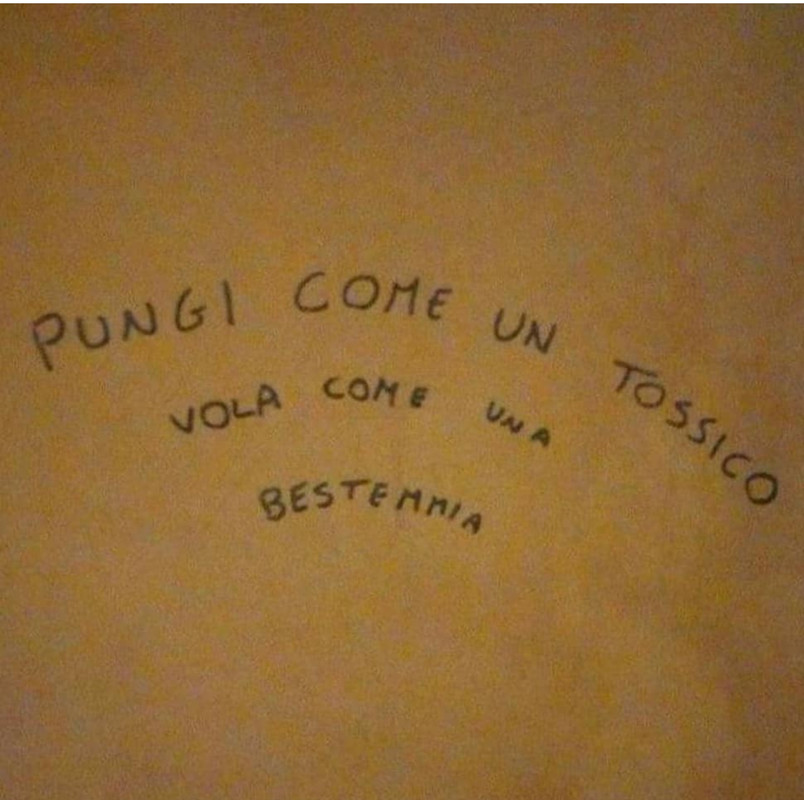 PUNGI COME UN TOSSICO
VOLA COME UNA
BESTEMMIA